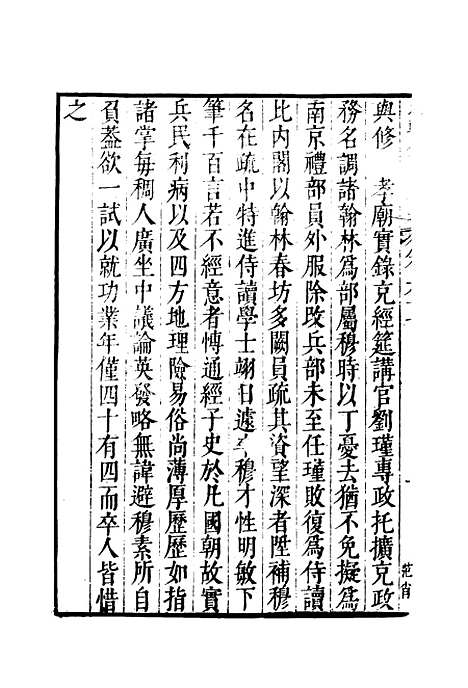 與修 孝廟實錄充經筵講官劉瑾專政托擴充政
務名調諸翰林爲部屬穆時以丁憂去猶不免擬爲
南京禮部員外服除改兵部未至任瑾敗復爲侍讀
比内閣以翰林春坊多闕員疏其資望深者陞補穆
名在疏中特進侍讀學士翊日遽卒穆才性明敏下
筆千百言若不經意者愽通經子史於凡國朝故實
兵民利病以及四方地理險易俗尚薄厚歷歷如指
諸掌每稠人廣坐中議論英發略無諱避穆素所自
負葢欲一試以就功業年僅四十有四而卒人皆惜
之